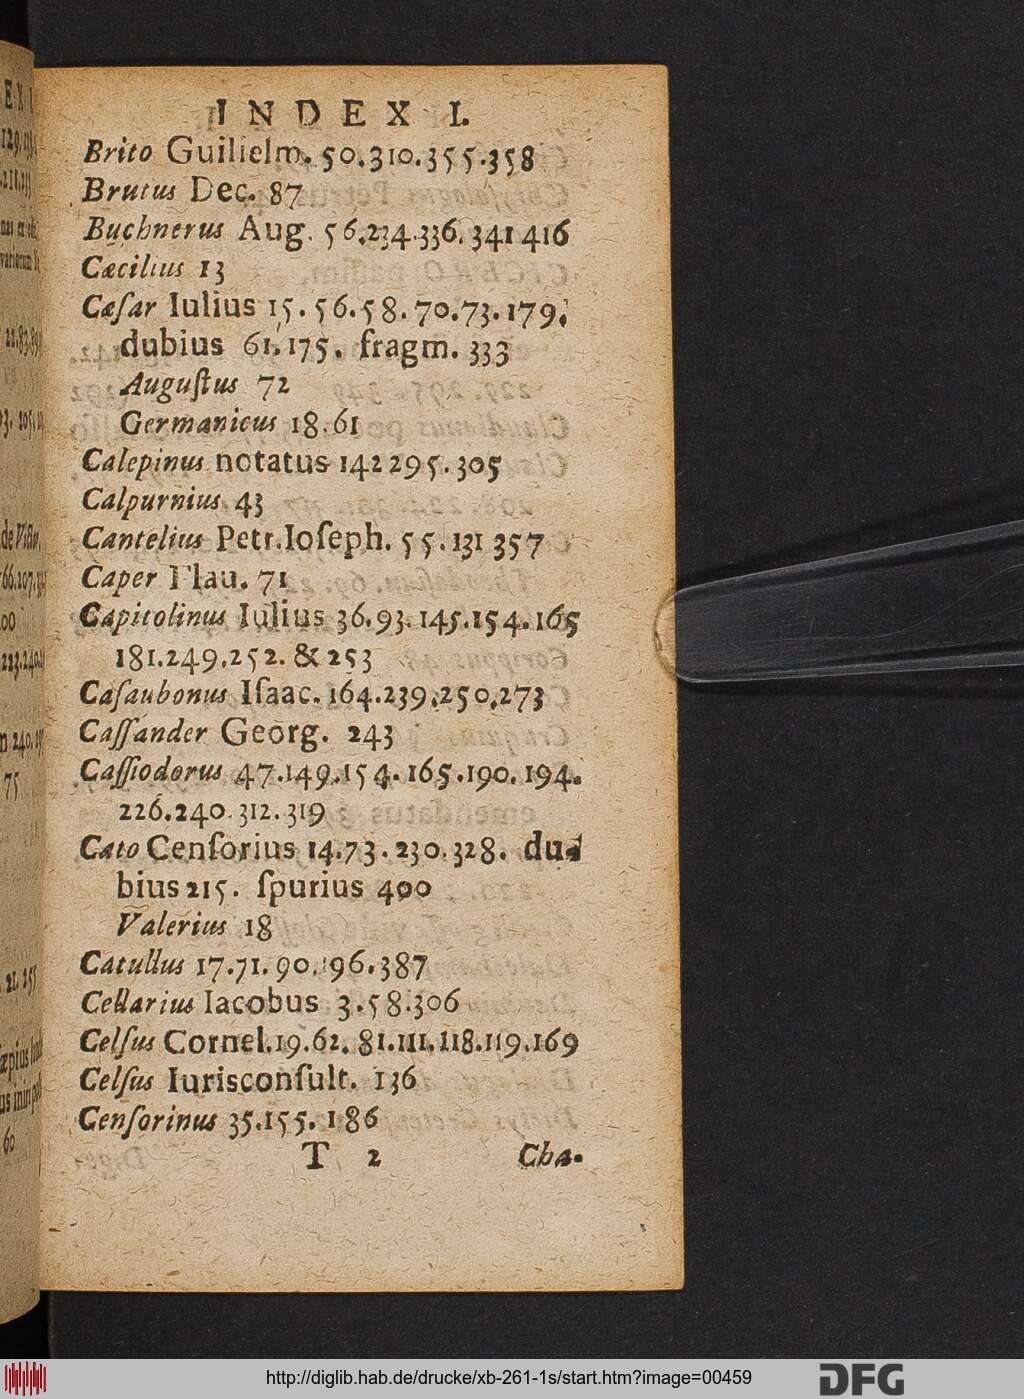 INDEX I.
Brito Guilielm. 50.310.355.358
Brutus Dec. 87
Buchnerus Aug. 56.234.336.341 416
Cæcilius 13
Cæſar Iulius 15.56.58.70.73.179.
dubius 61.175. fragm. 333
Auguſtus 72
Germanicus 18.61
Calepinus notatus 142 295.305
Calpurnius 43
Cantelius Petr.Ioſeph. 55.131 357
Caper Flau. 71
Capitolinus Iulius 36.93.145.154.165
181.249.252. & 253
Caſaubonus Iſaac. 164.239.250.273
Caſſander Georg. 243
Caſſiodorus 47.149.154.165.190.194.
226.240.312.319
Cato Cenſorius 14.73.230.328. du-
bius 215. ſpurius 400
Valerius 18
Catullus 17.71.90.96.387
Cellarius Iacobus 3.58.306
Celſus Cornel.19.62.81.111.118.119.169
Celſus Iurisconſult. 136
Cenſorinus 35.155.186
T 2 Cha-
http://diglib.hab.de/drucke/xb-261-1s/start.htm?image=00459
DFG